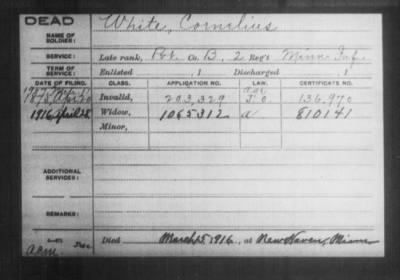 DEAD
NAME OF SOLDIER:
White, Cornelius
SERVICE:
Late rank, Pvt. Co. B, 2 Reg't Minn Inf.
TERM OF SERVICE:
Enlisted , 1 Discharged , 1
DATE OF FILING. CLASS. APPLICATION NO. LAW. CERTIFICATE NO.
Invalid, 203,329 136,970
1916 April 28 Widow, 1065312 a 810141
Minor,
ADDITIONAL SERVICES:
REMARKS:
Died March 5, 1916, at New Haven, Minn